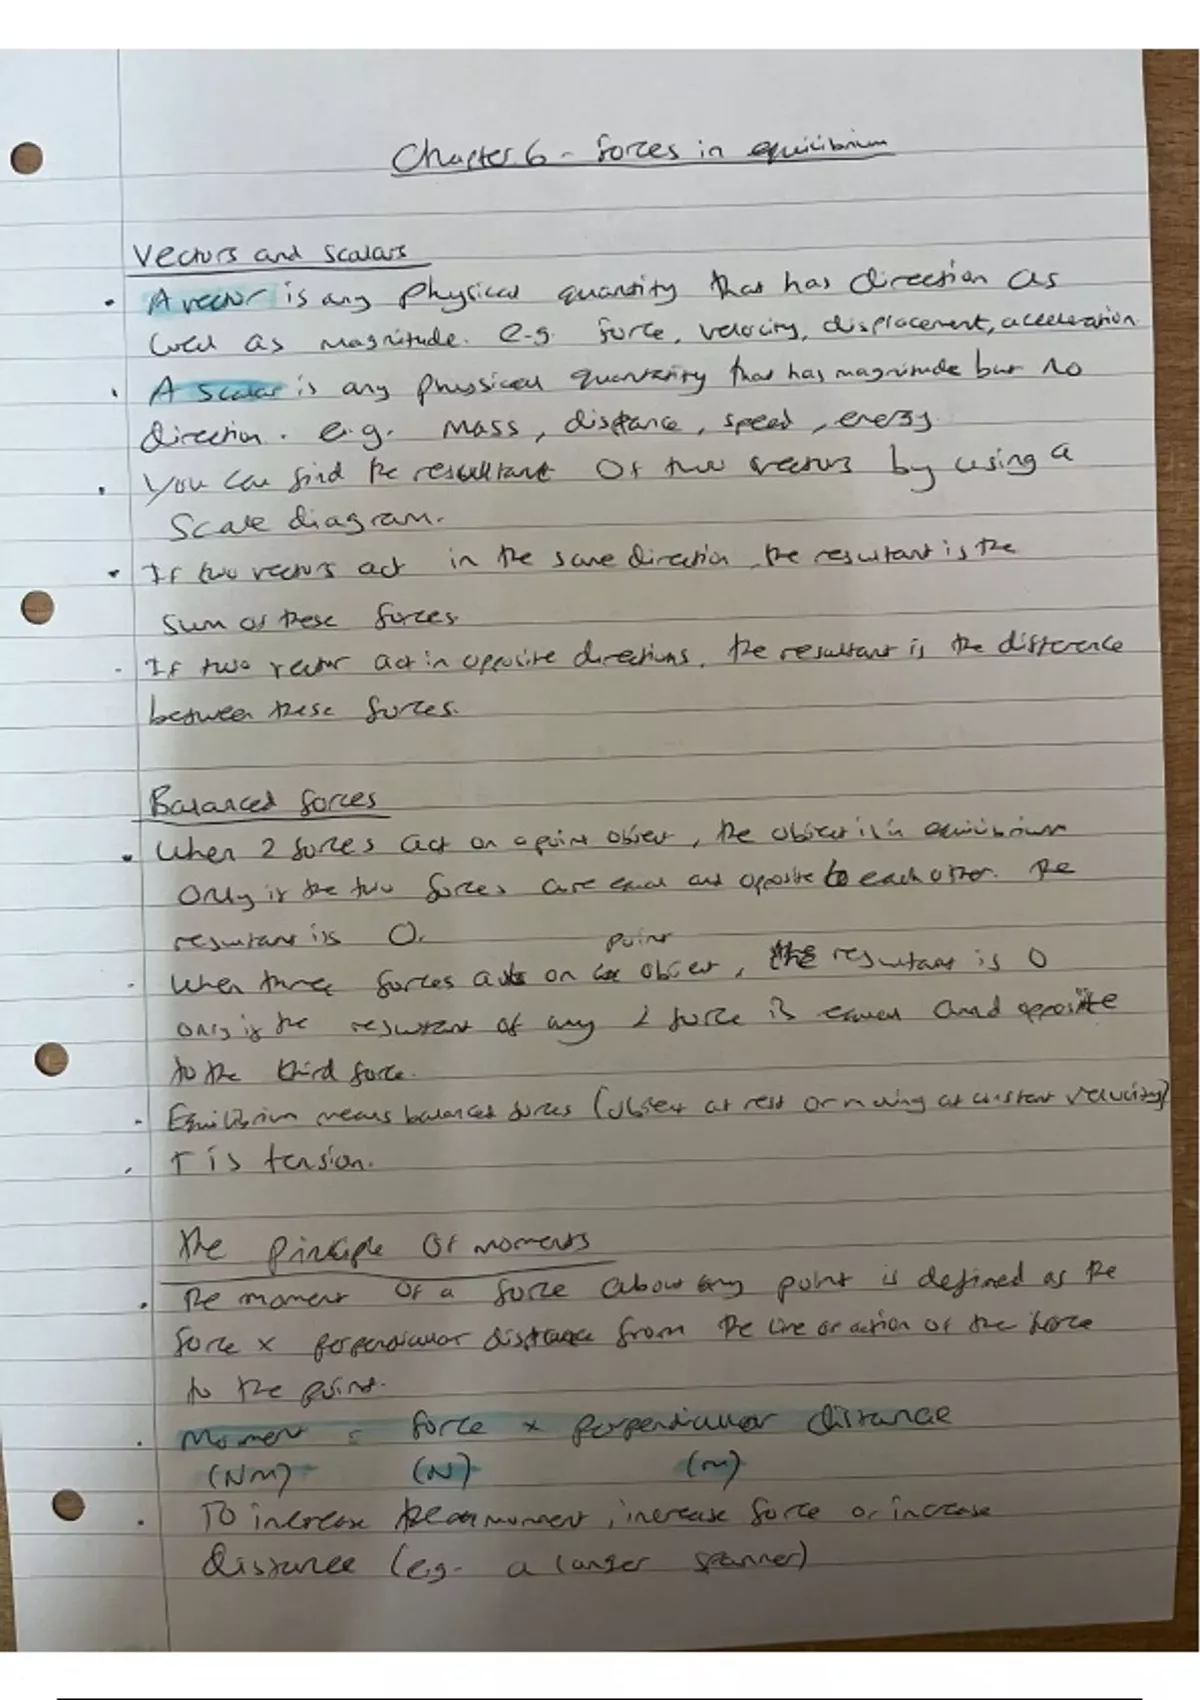 Chapter 6 - forces in equilibrium
Vectors and scalars
• A vector is any physical quantity that has direction as
well as magnitude. e.g. force, velocity, displacement, acceleration
• A scalar is any physical quantity that has magnitude but no
direction. e.g. mass, distance, speed, energy
• You can find the resultant of two vectors by using a
scale diagram.
• If two vectors act in the same direction, the resultant is the
sum of these forces.
• If two vector act in opposite directions, the resultant is the difference
between these forces.
Balanced forces
• When 2 forces act on a point object, the object is in equilibrium
only if the two forces are equal and opposite to each other. The
resultant is 0.
point
• When three forces act on object, the resultant is 0
only if the resultant of any 2 force is equal and opposite
to the third force.
• Equilibrium means balanced forces (object at rest or moving at constant velocity)
• T is tension.
The Principle of moments
• The moment of a force about any point is defined as the
force x perpendicular distance from the line of action of the force
to the point.
• Moment = force x perpendicular distance
(Nm) (N) (m)
• To increase the moment, increase force or increase
distance (e.g. a longer spanner)